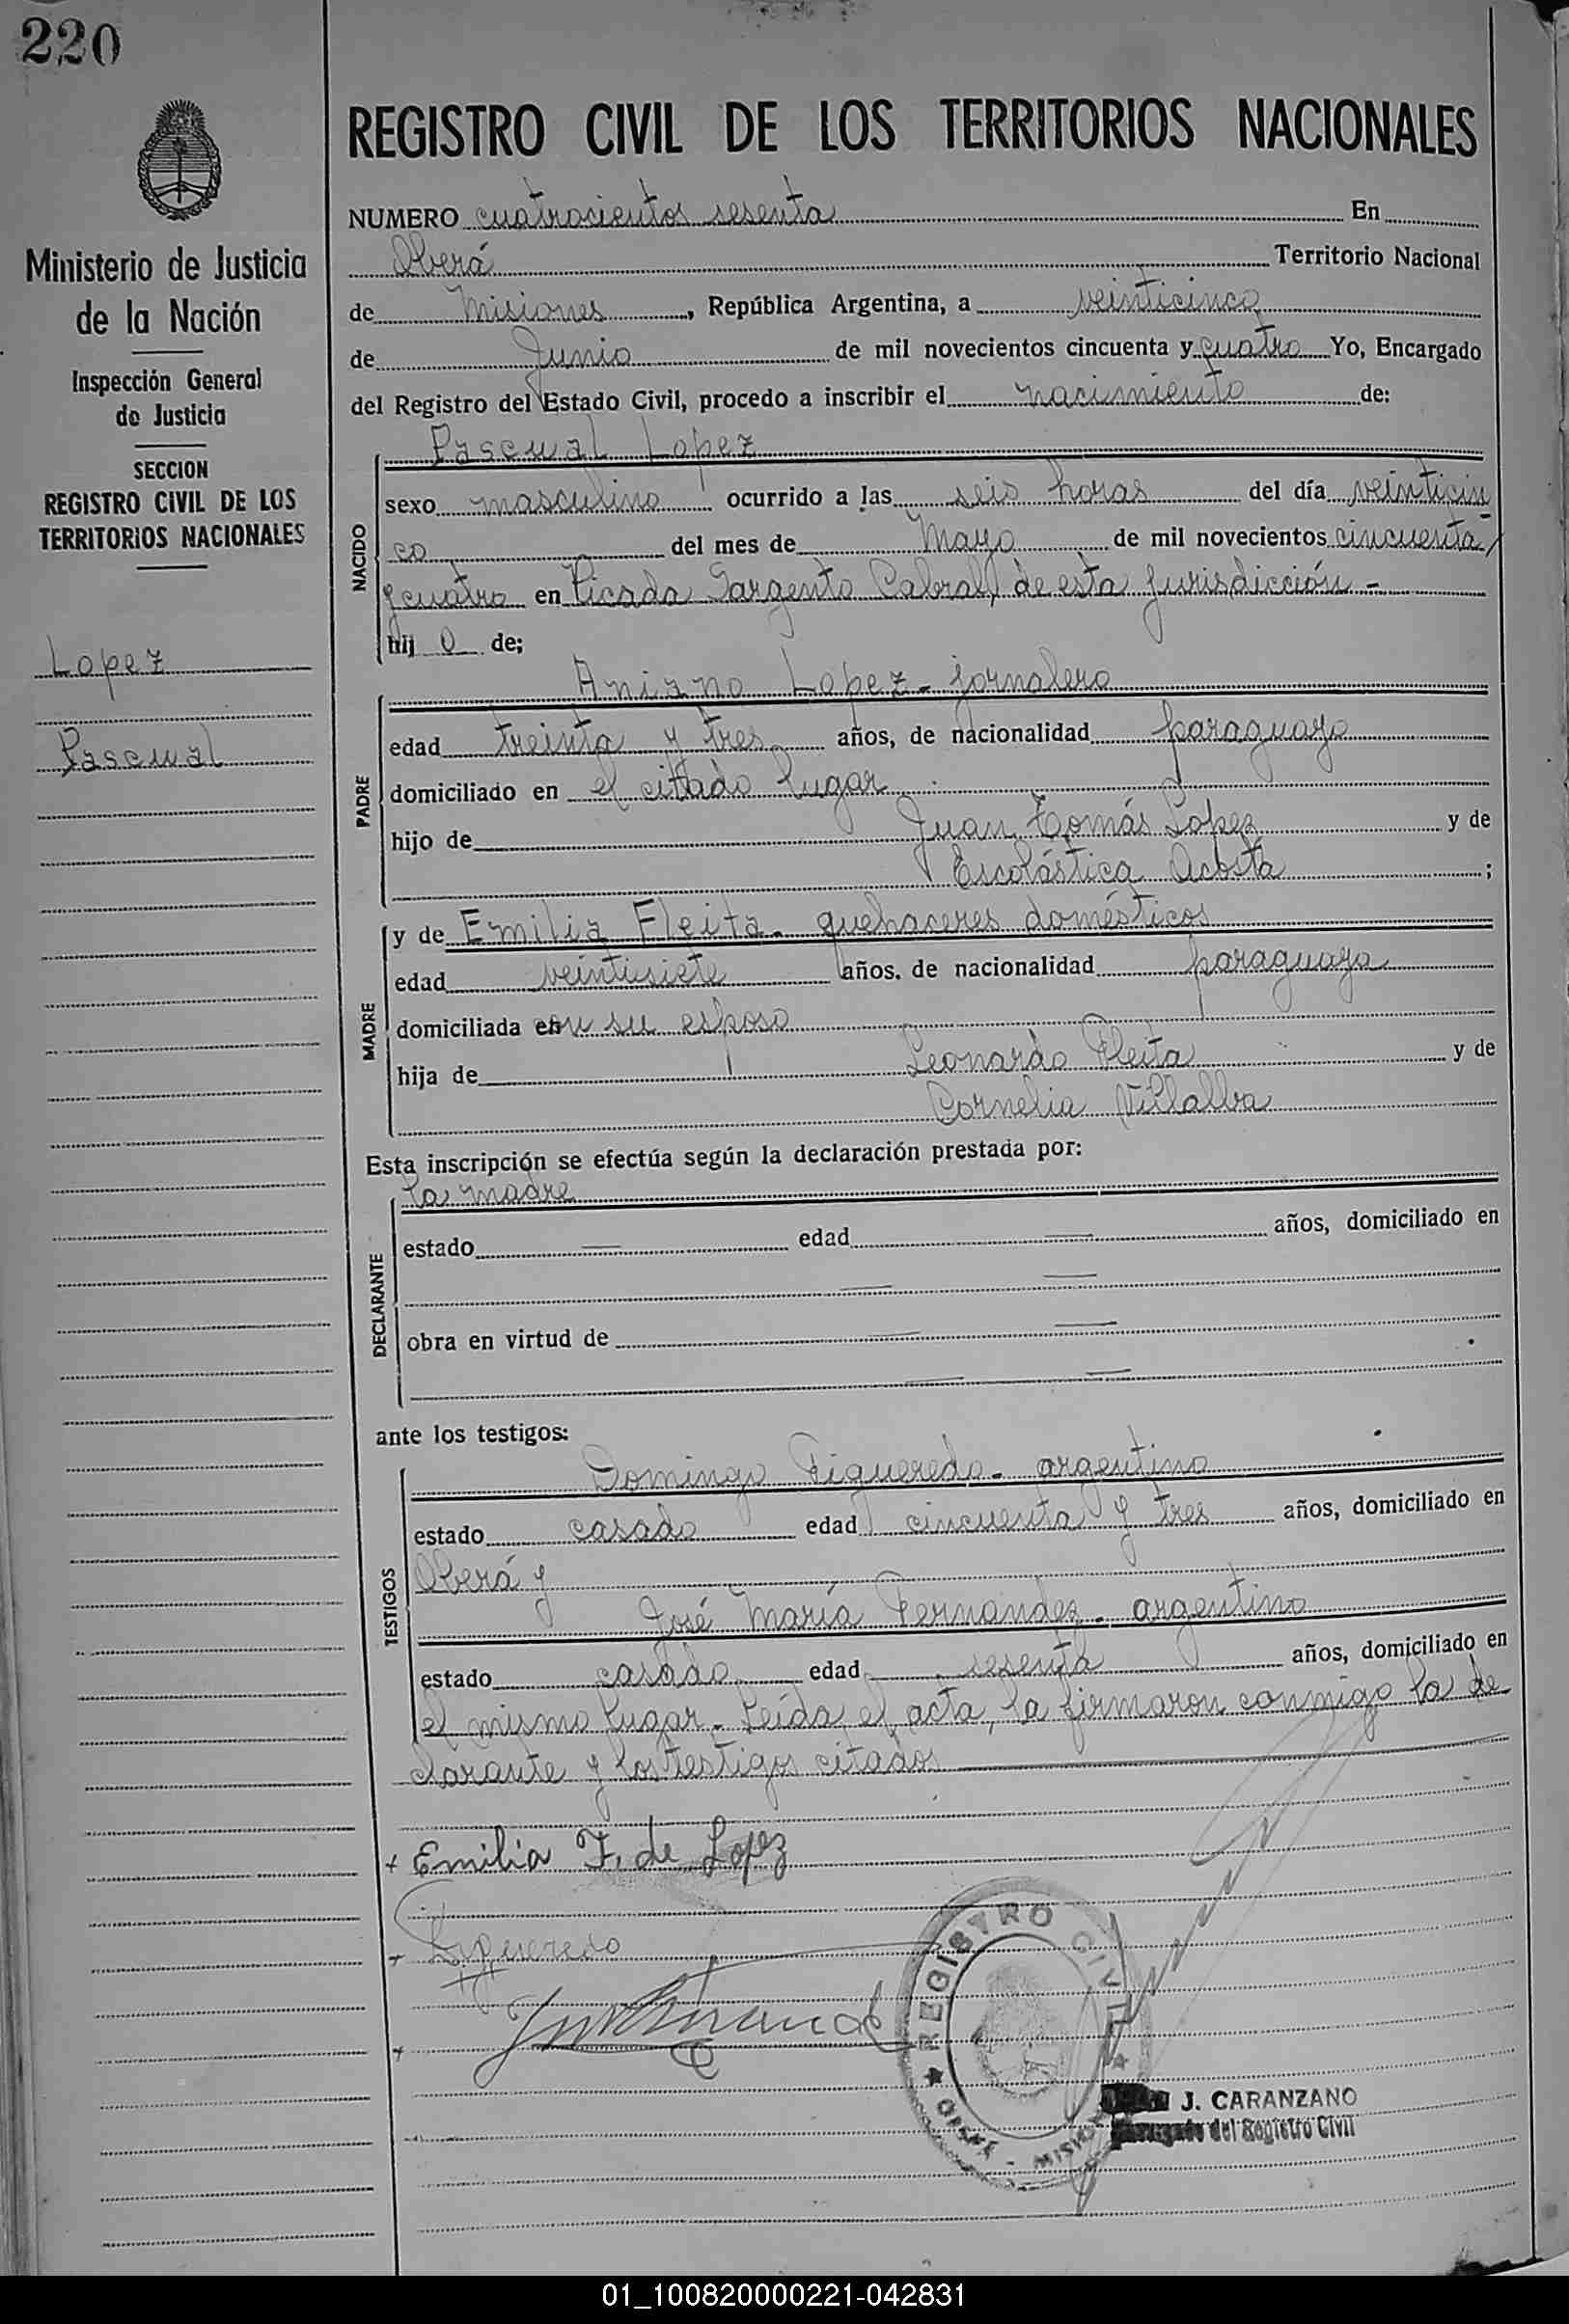 220
Ministerio de Justicia
de la Nación
Inspección General
de Justicia
SECCION
REGISTRO CIVIL DE LOS
TERRITORIOS NACIONALES
Lopez
Pascual
REGISTRO CIVIL DE LOS TERRITORIOS NACIONALES
NUMERO cuatrocientos sesenta En
Oberá Territorio Nacional
de Misiones, República Argentina, a veinticinco
de Junio de mil novecientos cincuenta y cuatro Yo, Encargado
del Registro del Estado Civil, procedo a inscribir el nacimiento de:
Pascual Lopez
NACIDO
sexo masculino ocurrido a las seis horas del día veinticin
co del mes de Mayo de mil novecientos cincuenta
y cuatro en Picada Sargento Cabral, de esta jurisdicción.-
hij o de;
Aniano Lopez - jornalero
PADRE
edad treinta y tres años, de nacionalidad paraguayo
domiciliado en el citado lugar
hijo de Juan Tomás Lopez y de
Escolástica Acosta ;
y de Emilia Fleita - quehaceres domésticos
MADRE
edad veintisiete años. de nacionalidad paraguaya
domiciliada con su esposo
hija de Leonardo Fleita y de
Cornelia Villalba
Esta inscripción se efectúa según la declaración prestada por:
la madre
DECLARANTE
estado — edad — años, domiciliado en
— —
obra en virtud de — —
— —
ante los testigos:
Domingo Figueredo - argentino
TESTIGOS
estado casado edad cincuenta y tres años, domiciliado en
Oberá y
José María Fernandez - argentino
estado casado edad sesenta años, domiciliado en
el mismo lugar. Leída el acta, la firmaron conmigo la de
clarante y los testigos citados
+ Emilia F. de Lopez
+ Figueredo
+
REGISTRO CIVIL
OBERÁ - MISIONES
J. CARANZANO
Encargado del Registro Civil
01_100820000221-042831